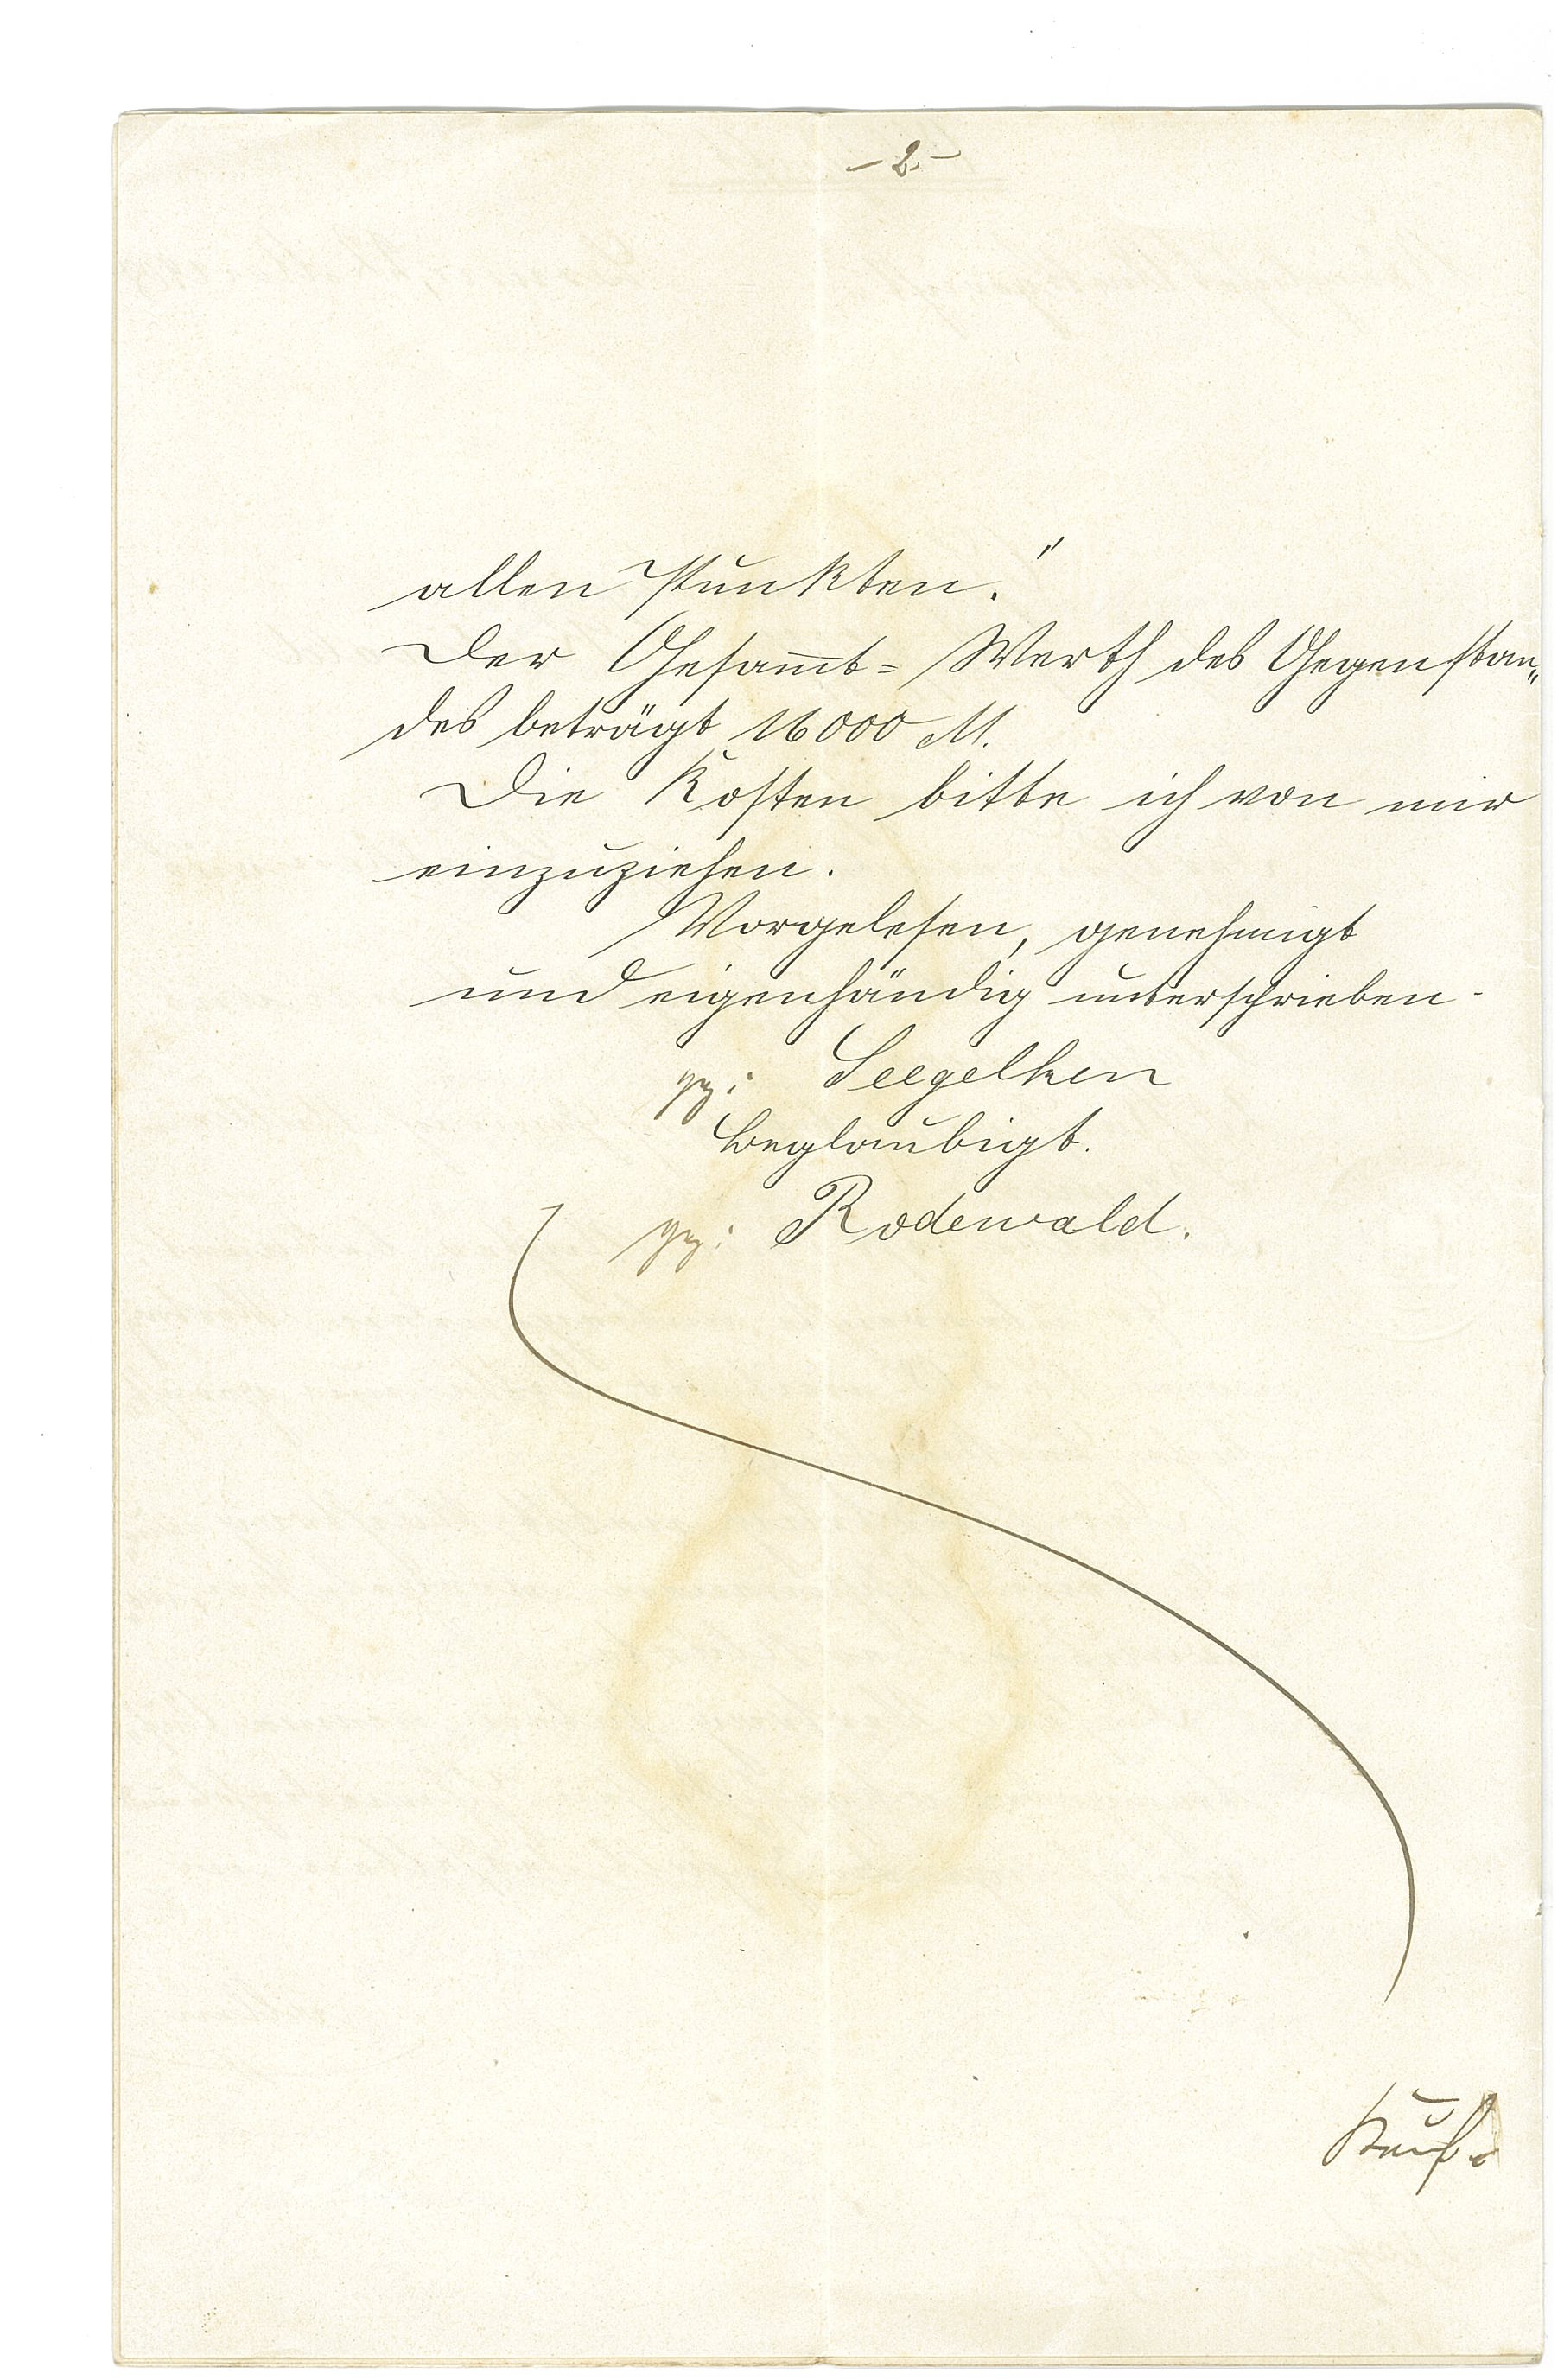 - 2. -
allen Punkten."
Der Gesam̅t= Werth des Gegenstan„
des beträgt 16000 M.
Die Kosten bitte ich von mir
einzuziehen.
Vorgelesen, genehmigt
und eigenhändig unterschrieben.
gz: Seegelken
Beglaubigt.
gz: Rodewald.